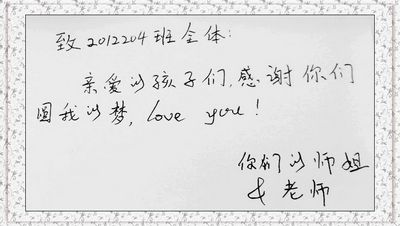 致2012204班全体:
亲爱的孩子们,感谢你们
圆我的梦, love you!
你们的师姐
& 老师